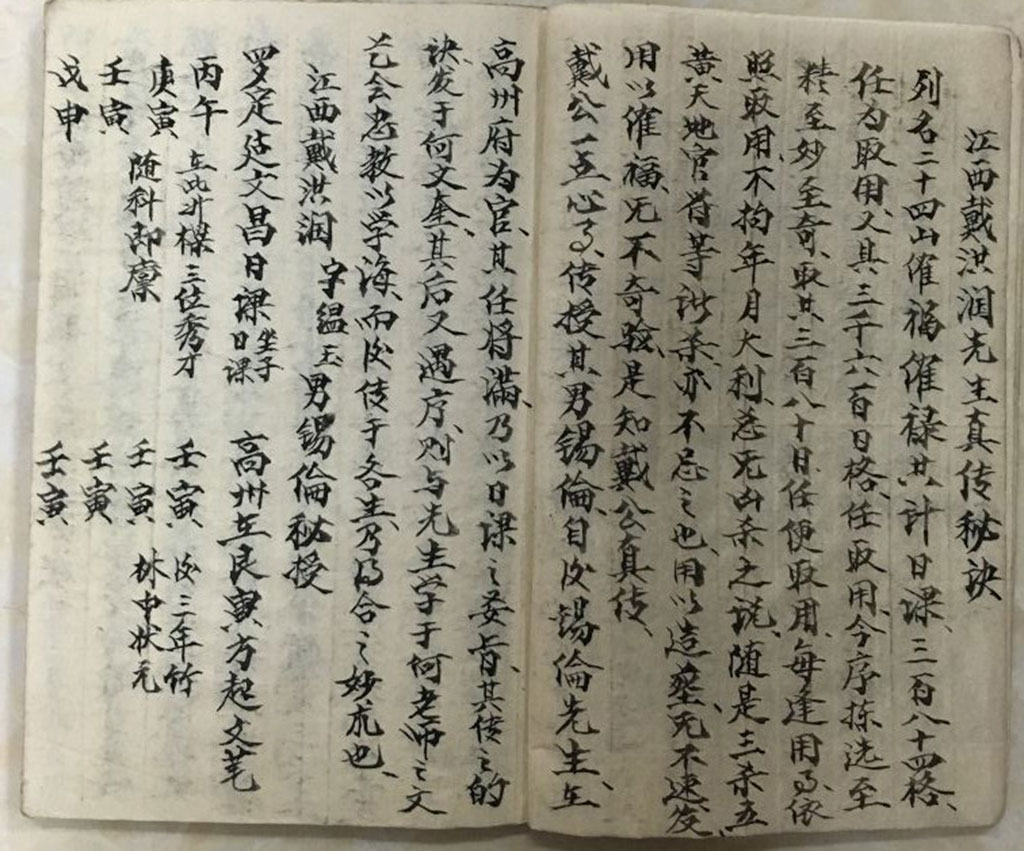 江西戴洪润先生真传秘诀
列名二十四山催福催禄共计日课、三百八十四格、
任为取用、又具三千六百日格、任取用、今序拣选至
精至妙至奇、取其三百八十日任便取用、每逢用事依
照取用、不拘年月大利、总无凶杀之说、随是三杀五
黄天地官符等诸杀、亦不忌之也、用以造葬无不速发、
用以催福、无不奇验、是知戴公真传、
戴公一生心事、传授其男锡倫、自后锡倫先生、在
高州府为官、其任将满、乃以日课之妥旨、其传之的
诀发于何文奎、其后又遇序、则与先生学于何老师之文
艺会忠教以学海、而后传于各生、乃为合之妙用也、
江西戴洪润 字缊玉 男锡倫秘授
罗定建文昌日课 坐子日课 高州在艮寅方起文笔
丙午 庚寅 壬寅 戊申 在此升樑三位秀才 随科即廪
壬寅 壬寅 壬寅 壬寅 后三年竹 林中状元